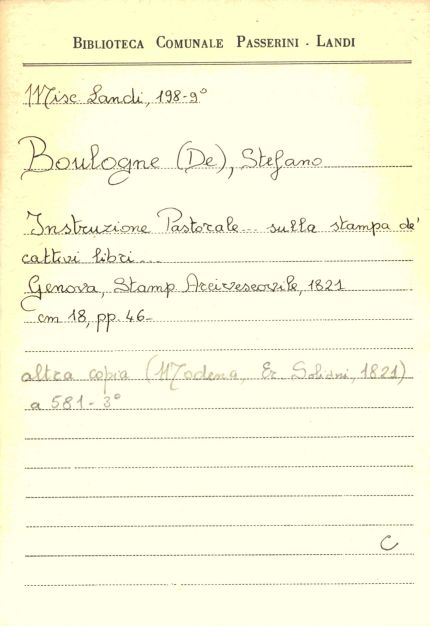 BIBLIOTECA COMUNALE PASSERINI - LANDI
Misc Landi, 198-9°
Boulogne (De), Stefano
Instruzione Pastorale... sulla stampa de'
cattivi libri...
Genova, Stamp Arcivescovile, 1821
cm 18, pp. 46-
altra copia (Modena, Er. Soliani, 1821)
a 581-3°
C